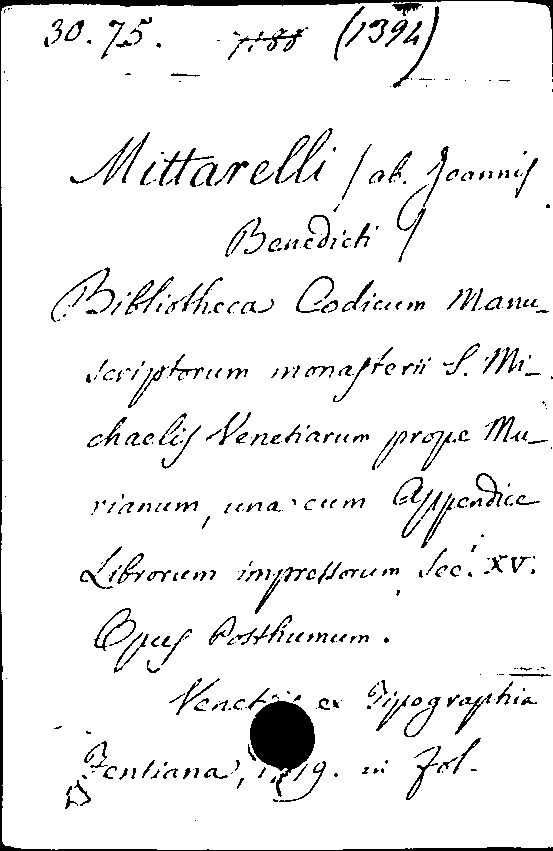 30.75. 7188 (1394)
Mittarelli /ab. Joannis
Benedicti /
Bibliotheca Codicum Manu-
scriptorum monasterii S. Mi-
chaelis Venetiarum prope Mu-
rianum, una cum Appendice
Librorum impressorum Sec. XV.
Opus Posthumum.
Venetiis ex Tipographia
Fentiana, in Fol.